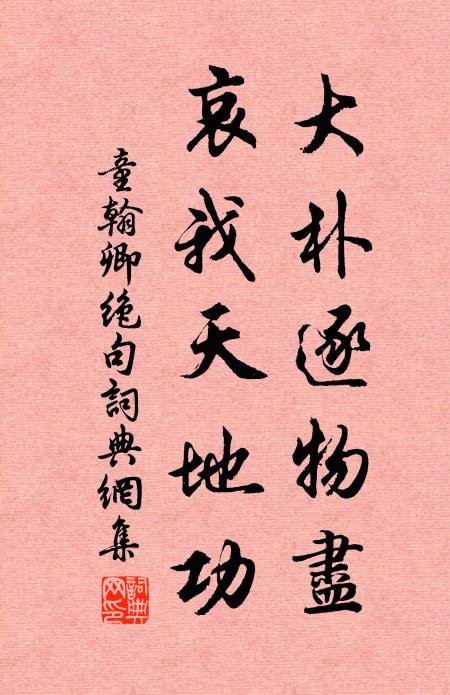 大朴逐物盡
哀我天地功
童翰卿絶句詞典網集
詞典網印